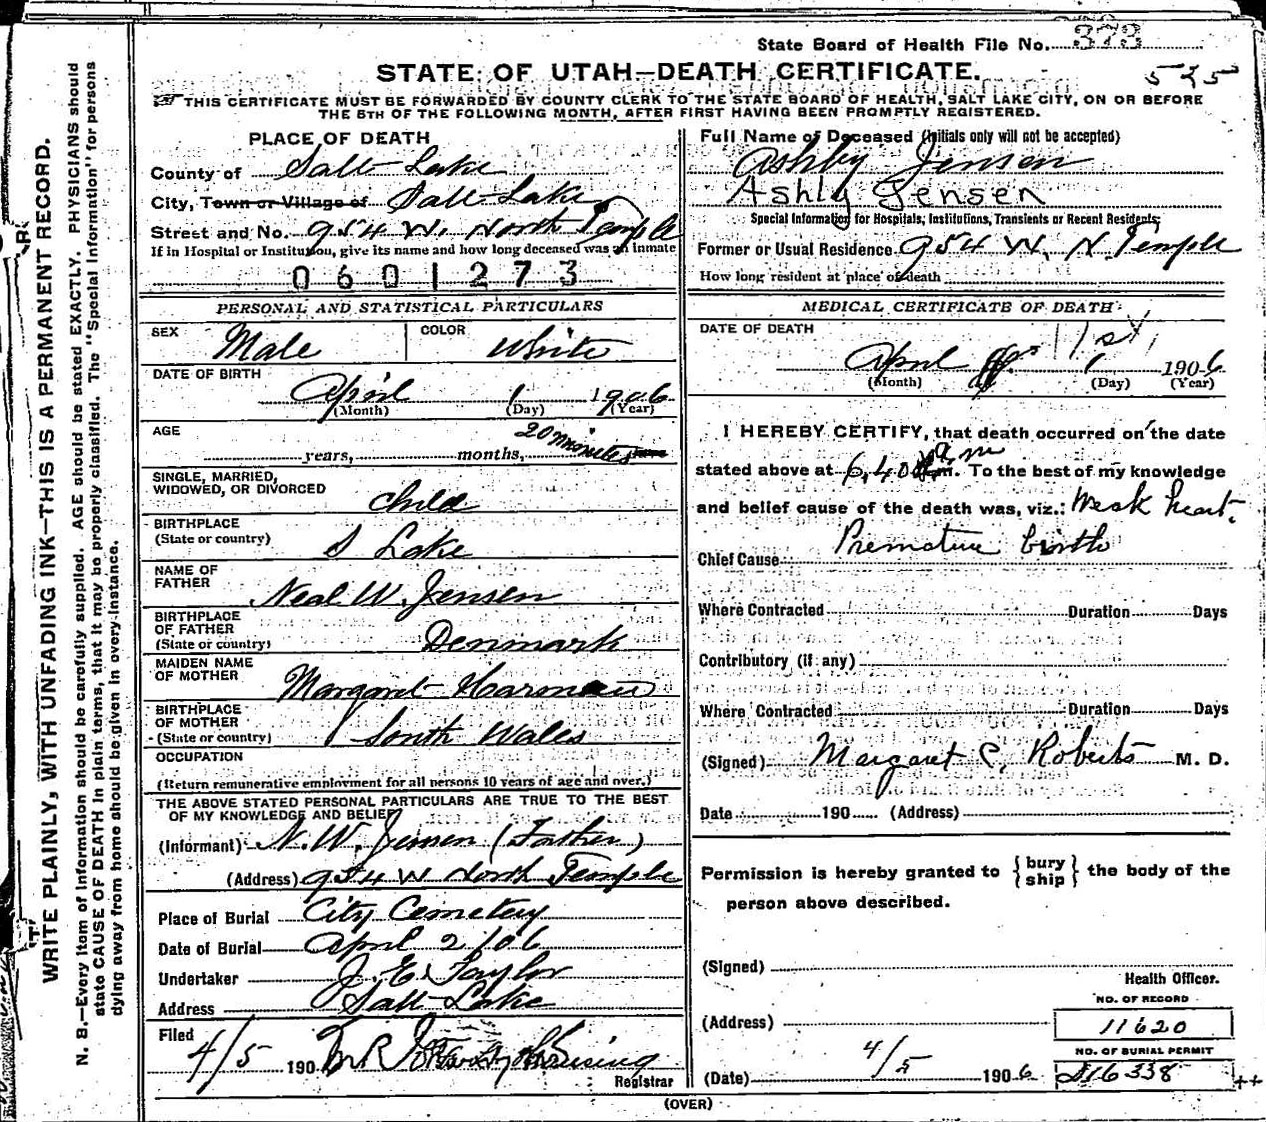 State Board of Health File No. 373
STATE OF UTAH—DEATH CERTIFICATE.
525
THIS CERTIFICATE MUST BE FORWARDED BY COUNTY CLERK TO THE STATE BOARD OF HEALTH, SALT LAKE CITY, ON OR BEFORE
THE 5TH OF THE FOLLOWING MONTH, AFTER FIRST HAVING BEEN PROMPTLY REGISTERED.
WRITE PLAINLY, WITH UNFADING INK—THIS IS A PERMANENT RECORD.
N. B.—Every item of information should be carefully supplied. AGE should be stated EXACTLY. PHYSICIANS should
state CAUSE OF DEATH in plain terms, that it may be properly classified. The "Special Information" for persons
dying away from home should be given in every instance.
PLACE OF DEATH
County of Salt Lake
City, Town or Village of Salt Lake
Street and No. 954 W. North Temple
If in Hospital or Institution, give its name and how long deceased was an inmate
0601273
PERSONAL AND STATISTICAL PARTICULARS
SEX Male COLOR White
DATE OF BIRTH
April 1 1906
(Month) (Day) (Year)
AGE
years, months, 20 minutes
SINGLE, MARRIED,
WIDOWED, OR DIVORCED Child
BIRTHPLACE
(State or country) S Lake
NAME OF
FATHER Neal W. Jensen
BIRTHPLACE
OF FATHER
(State or country) Denmark
MAIDEN NAME
OF MOTHER Margaret Harman
BIRTHPLACE
OF MOTHER
(State or country) South Wales
OCCUPATION
(Return remunerative employment for all persons 10 years of age and over.)
THE ABOVE STATED PERSONAL PARTICULARS ARE TRUE TO THE BEST
OF MY KNOWLEDGE AND BELIEF
(Informant) N. W. Jensen (Father)
(Address) 954 W North Temple
Place of Burial City Cemetery
Date of Burial April 2 /06
Undertaker J. E. Taylor
Address Salt Lake
Filed
4/5 190
Registrar
Full Name of Deceased (Initials only will not be accepted)
Ashby Jensen
Ashly Jensen
Special Information for Hospitals, Institutions, Transients or Recent Residents;
Former or Usual Residence 954 W. N. Temple
How long resident at place of death
MEDICAL CERTIFICATE OF DEATH
DATE OF DEATH 1st,
April 1 1906
(Month) (Day) (Year)
I HEREBY CERTIFY, that death occurred on the date
stated above at 6,40 a m. To the best of my knowledge
and belief cause of the death was, viz.: Weak heart.
Chief Cause Premature birth
Where Contracted Duration Days
Contributory (if any)
Where Contracted Duration Days
(Signed) Margaret C. Roberts M. D.
Date 190 (Address)
Permission is hereby granted to { bury ship } the body of the
person above described.
(Signed)
Health Officer.
NO. OF RECORD
(Address) 11620
NO. OF BURIAL PERMIT
(Date) 4/5 1906 D16338
(OVER)